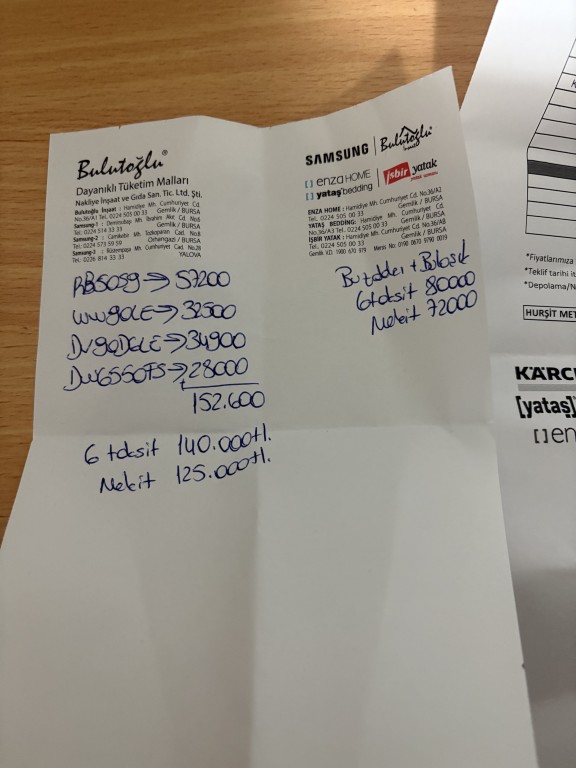 Bulutoğlu®
Dayanıklı Tüketim Malları
Nakliye İnşaat ve Gıda San. Tic. Ltd. Şti.
Bulutoğlu İnşaat : Hamidiye Mh. Cumhuriyet Cd.
No.36/A1 Tel. 0224 505 00 33 Gemlik / BURSA
Samsung-1 : Demirsubaşı Mh. İbrahim Akıt Cd. No.8
Tel: 0224 514 13 33 Gemlik / BURSA
Samsung-2 : Camikebir Mh. Cad. No.8
Tel: 0224 573 59 59 Orhangazi / BURSA
Samsung-3 : Rüstempaşa Mh Cumhuriyet Cad. No.28
Tel: 0226 814 33 33 YALOVA
RB50S9→57200
WW90CLE→32500
DV90DCLE→34900
DW6550FS→28000
152.600
6 taksit 140.000tl.
Nakit 125.000tl.
SAMSUNG Bulutoğlu
enza HOME işbir yatak
yataş bedding
ENZA HOME : Hamidiye Mh. Cumhuriyet Cd. No.36/A2
Tel. 0224 505 00 33 Gemlik / BURSA
YATAŞ BEDDING: Hamidiye Mh. Cumhuriyet Cd.
No.36/A3 Tel. 0224 505 00 33 Gemlik / BURSA
İŞBİR YATAK : Hamidiye Mh. Cumhuriyet Cd. No.36/A8
Tel: 0224 505 00 33 Gemlik / BURSA
Gemlik V.D. 1900 670 979 Mersis No: 0190 0670 9790 0019
Buzdolabı + Bulaşık
6 taksit 80000
Nakit 72000
*Fiyatlarımıza
*Teklif tarihi it
*Depolama/N
HURŞİT MET
KÄRC
[yataş]
[ ] en